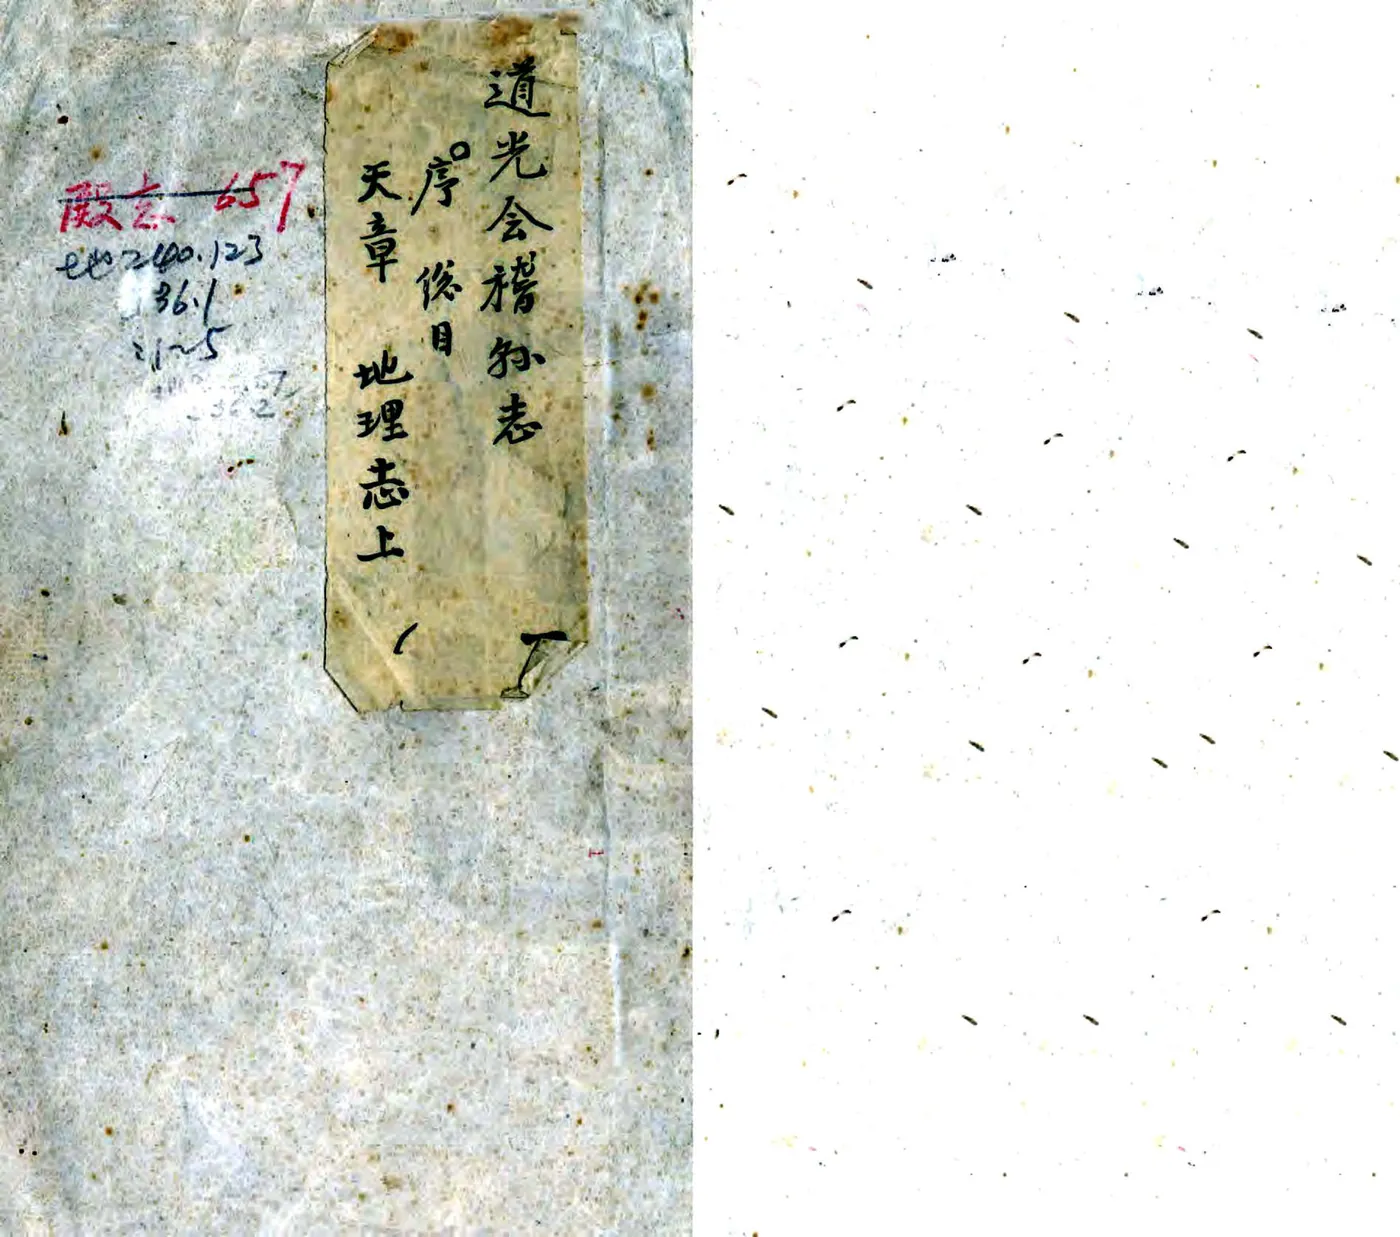 道光会稽縣志
序 総目
天章 地理志上
殿志 657
地240.123
36.1
:1~5